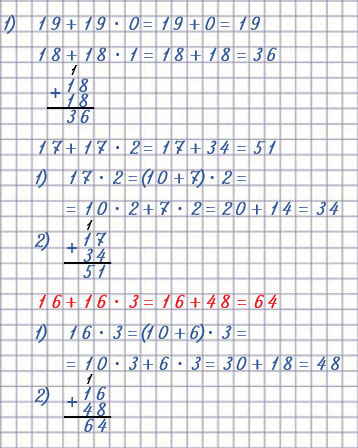 1) 19 + 19 · 0 = 19 + 0 = 19
18 + 18 · 1 = 18 + 18 = 36
1
+ 18
18
36
17 + 17 · 2 = 17 + 34 = 51
1) 17 · 2 = (10 + 7) · 2 =
= 10 · 2 + 7 · 2 = 20 + 14 = 34
1
2) + 17
34
51
16 + 16 · 3 = 16 + 48 = 64
1) 16 · 3 = (10 + 6) · 3 =
= 10 · 3 + 6 · 3 = 30 + 18 = 48
1
2) + 16
48
64